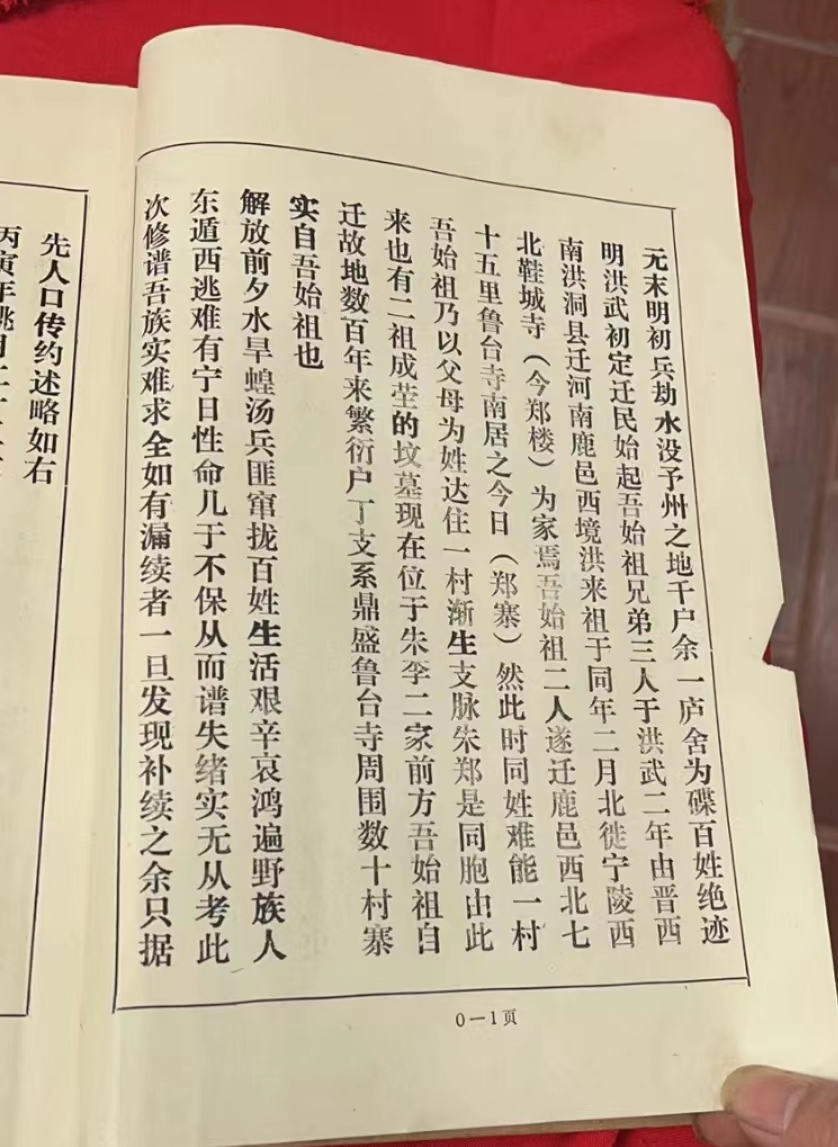 元末明初兵劫水没予州之地千户余一庐舍为碟百姓绝迹
明洪武初定迁民始起吾始祖兄弟三人于洪武二年由晋西
南洪洞县迁河南鹿邑西境洪来祖于同年二月北徙宁陵西
北鞋城寺（今郑楼）为家焉吾始祖二人遂迁鹿邑西北七
十五里鲁台寺南居之今日（郑寨）然此时同姓难能一村
吾始祖乃以父母为姓达住一村渐生支脉朱郑是同胞由此
来也有二祖成茔的坟墓现在位于朱李二家前方吾始祖自
迁故地数百年来繁衍户丁支系鼎盛鲁台寺周围数十村寨
实自吾始祖也
解放前夕水旱蝗汤兵匪窜拢百姓生活艰辛哀鸿遍野族人
东遁西逃难有宁日性命几于不保从而谱失绪实无从考此
次修谱吾族实难求全如有漏续者一旦发现补续之余只据
先人口传约述略如右
丙寅年
0—1頁